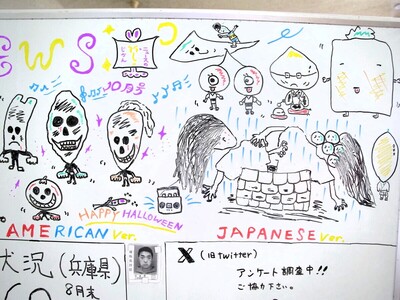 EWS
10月号
HAPPY HALLOWEEN
AMERICAN Ver.
JAPANESE Ver.
状況(兵庫県)
8月末
X (旧twitter)
アンケート調査中!!
ご協力下さい。